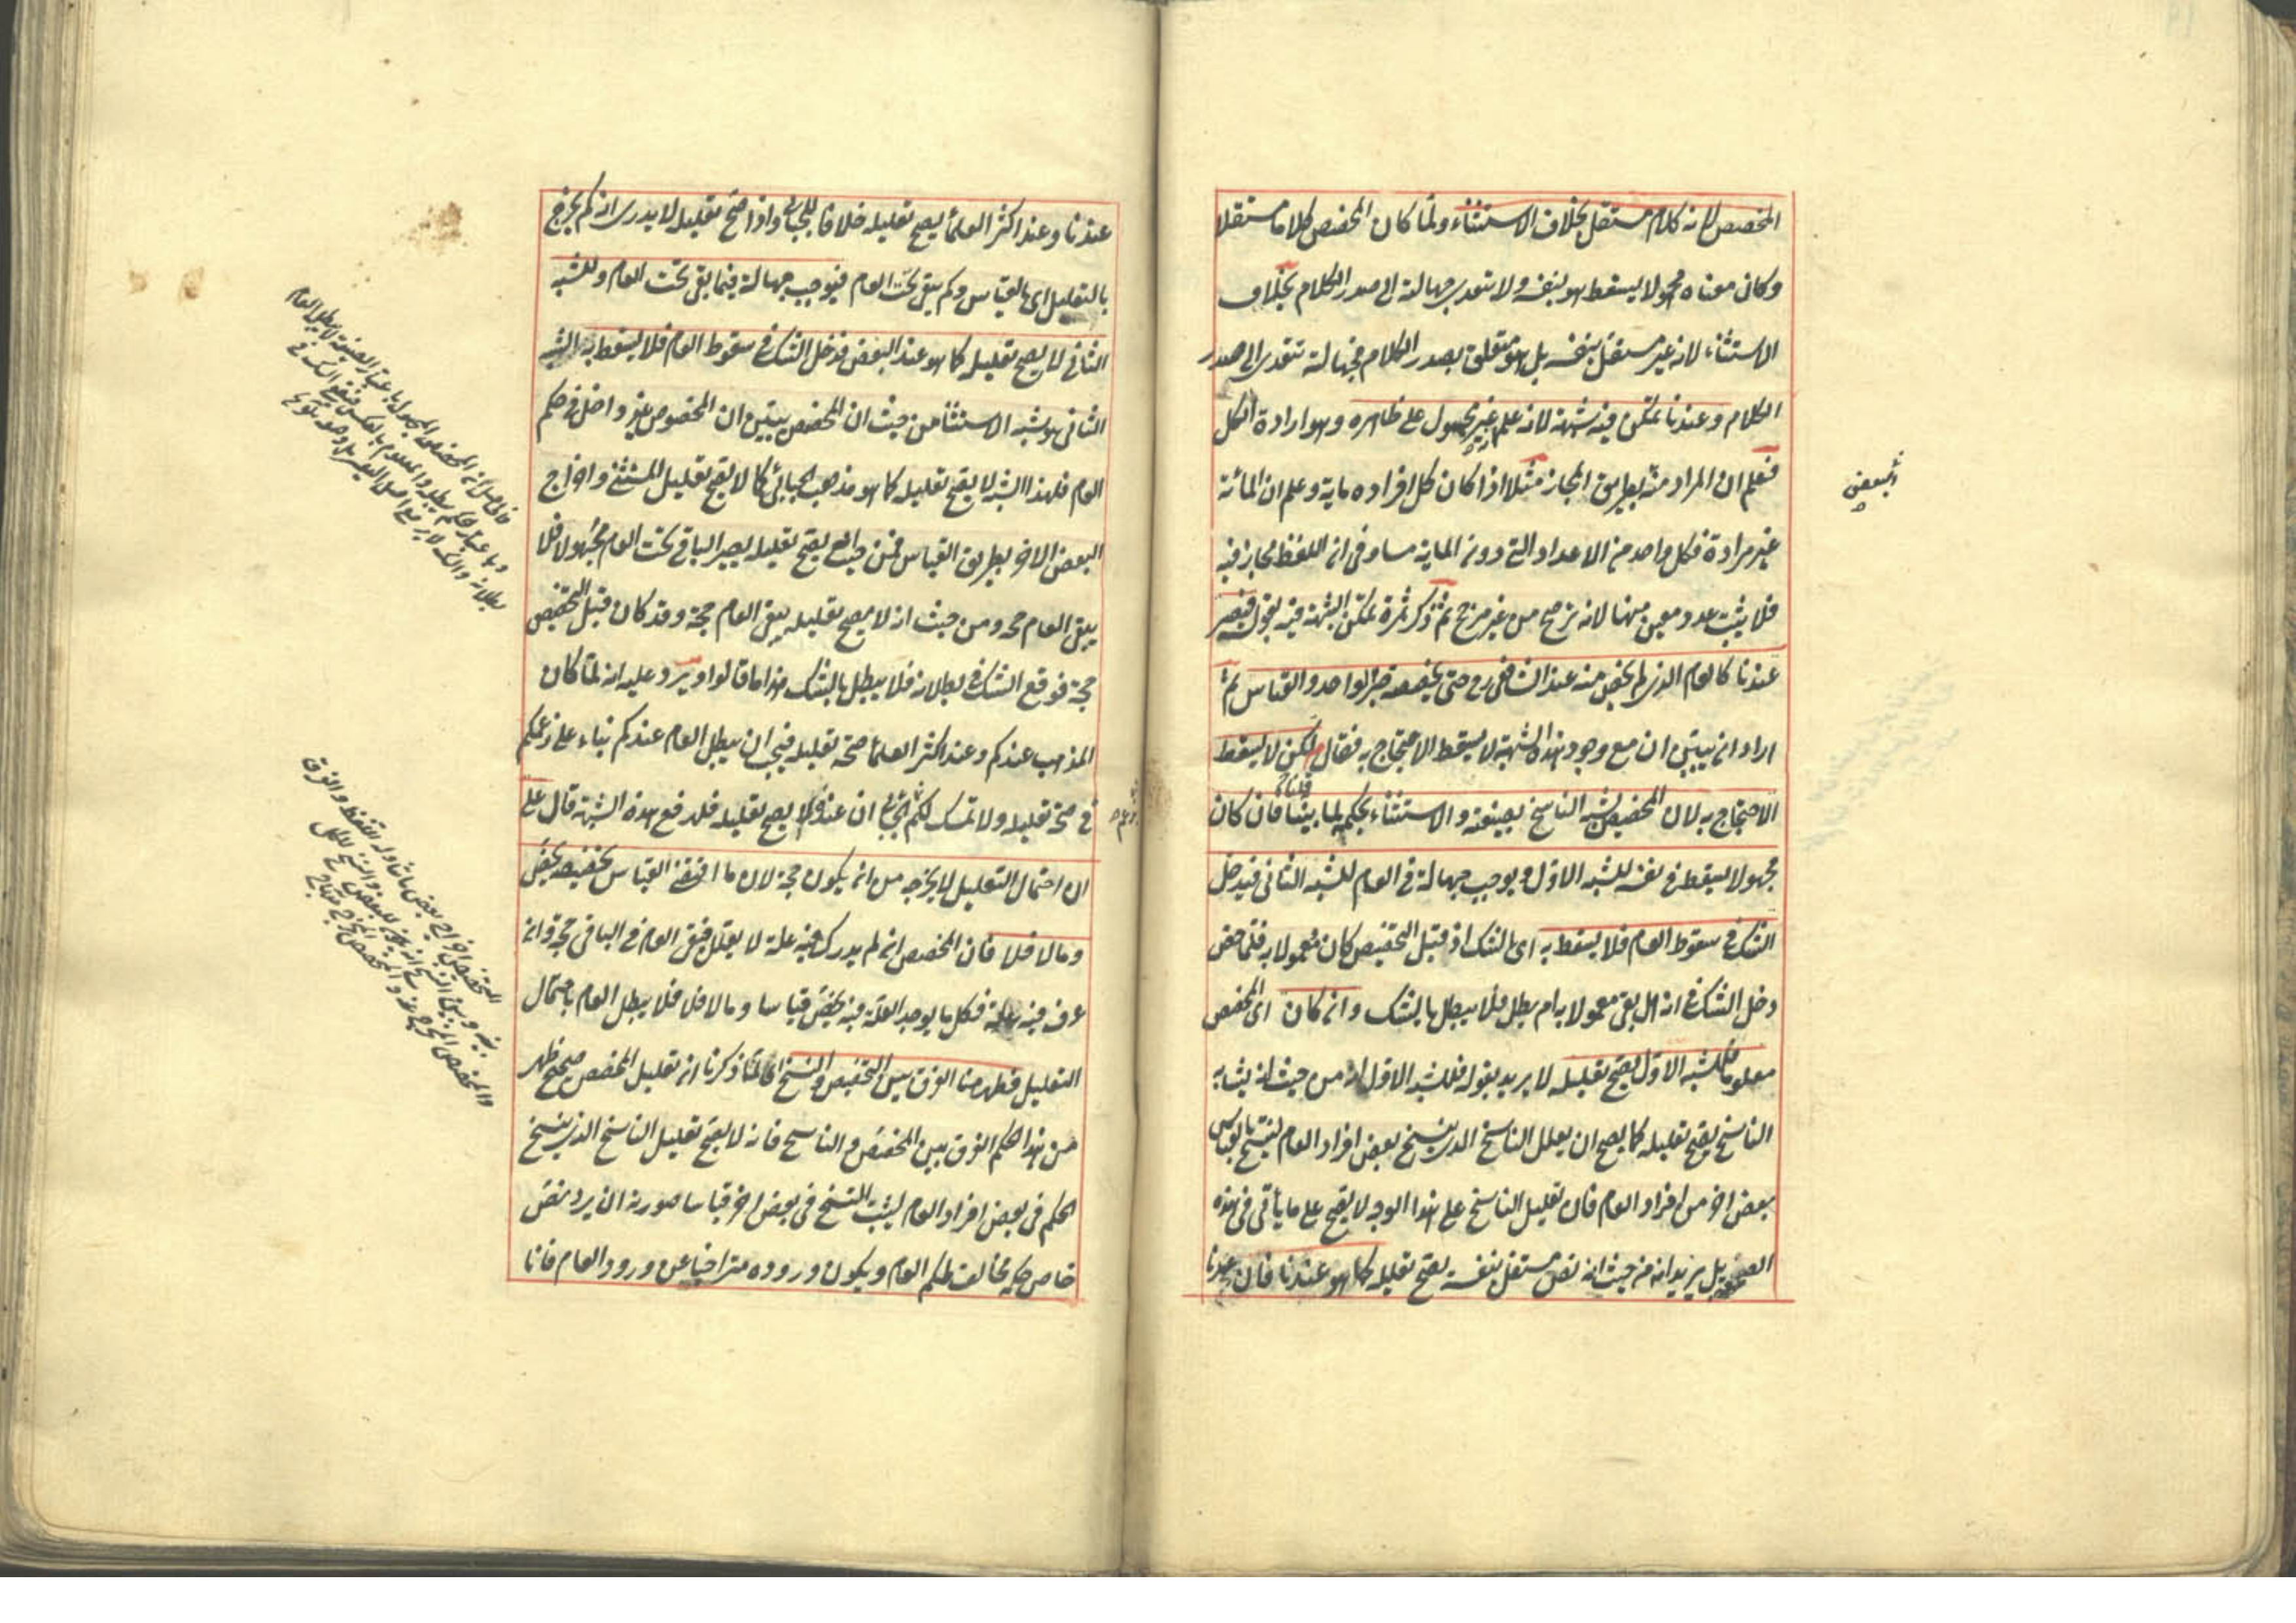 المخصص لانه كلام مستقل بخلاف الاستثناء ولما كان المخصص كلاما مستقلا
وكان معناه مجهولا يسقط هو بنفسه ولا تتعدى جهالته الى صدر الكلام بخلاف
الاستثناء لانه غير مستقل بنفسه بل هو متعلق بصدر الكلام فجهالته تتعدى الى صدر
الكلام وعندنا تمكن فيه شبهة لانه علم غير محمول على ظاهره وهو ارادة الكل
فعلم ان المراد منه بطريق المجاز مثلا اذا كان كل افراده ماية وعلم ان المائة
غير مرادة فكل واحد من الاعداد التي دون الماية مساو في ان اللفظ مجاز فيه
فلا يثبت عدد معين منها لانه ترجح من غير مرجح ثم ذكر ثمرة تمكن الشبهة فيه بقوله فيصير
عندنا كالعام الذي لم يخص منه عند الشافعي رح حتى يخصصه خبر الواحد والقياس ثم
اراد ان يبين ان مع وجود هذه الشبهة لا يسقط الاحتجاج به فقال لكن لا يسقط
الاحتجاج به لان المخصص يشبه الناسخ بصيغته والاستثناء بحكمه لما بينا فان كان
مجهولا يسقط في نفسه للشبه الاول ويوجب جهالة في العام للشبه الثاني فيدخل
الشك في سقوط العام فلا يسقط به اي بالشك اذ قبل التخصيص كان معمولا به فلما خص
دخل الشك في انه هل بقي معمولا به ام بطل فلا يبطل بالشك وان كان اي المخصص
معلوما فللشبه الاول يصح تعليله لا يريد بقوله فللشبه الاول انه من حيث انه يشابه
الناسخ يصح تعليله كما يصح ان يعلل الناسخ الذي ينسخ بعض افراد العام لينسخ بالقياس
بعض اخر من افراد العام فان تعليل الناسخ على هذا الوجه لا يصح على ما يأتي في هذه
الصفحة بل يريد انه من حيث انه نص مستقل بنفسه يصح تعليله كما هو عندنا فان عندنا
البعض
عندنا وعند اكثر العلماء يصح تعليله خلافا للجبائي واذا صح تعليله لا يدرى انه كم يخرج
بالتعليل اي بالقياس وكم يبقى تحت العام فيوجب جهالة فيما بقي تحت العام وللشبه
الثاني لا يصح تعليله كما هو عند البعض فدخل الشك في سقوط العام فلا يسقط به الشبه
الثاني هو شبه الاستثناء من حيث ان المخصص يبين ان المخصوص غير داخل في حكم
العام فلهذا الشبه لا يصح تعليله كما هو مذهب الجبائي كما لا يصح تعليل المستثنى واخراج
البعض الاخر بطريق القياس فمن حيث انه يصح تعليله يصير الباقي تحت العام مجهولا فلا
يبقى العام حجة ومن حيث انه لا يصح تعليله يبقى العام حجة وقد كان قبل التخصيص
حجة فوقع الشك في بطلانه فلا يبطل بالشك هذا ما قالوا ويرد عليه انه لما كان
المذهب عندكم وعند اكثر العلماء صحة تعليله فيجب ان يبطل العام عندكم بناء على زعمكم
في صحة تعليله ولا تمسك لكم بزعم الجبائي ان عنده لا يصح تعليله فلدفع هذه الشبهة قال على
ان احتمال التعليل لا يخرجه من ان يكون حجة لان ما اقتضى القياس تخصيصه يخص
وما لا فلا فان المخصص ان لم يدرك فيه علة لا يعلل فبقي العام في الباقي حجة وان
عرف فيه علة فكل ما يوجد العلة فيه يخص قياسا وما لا فلا فلا يبطل العام باحتمال
التعليل فظهر هنا الفرق بين التخصيص والنسخ اي لما ذكرنا ان تعليل المخصص صحيح ظهر
من هذا الحكم الفرق بين المخصص والناسخ فانه لا يصح تعليل الناسخ الذي ينسخ
الحكم في بعض افراد العام ليثبت النسخ في بعض اخر قياسا صورته ان يرد نص
خاص حكمه مخالف لحكم العام ويكون وروده متراخيا عن ورود العام فانا